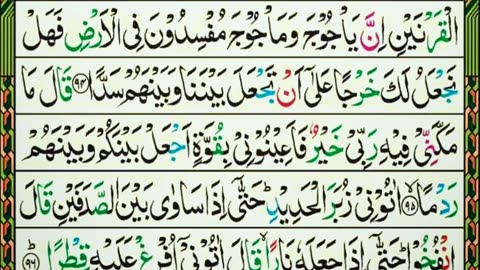 الْقَرْنَيْنِ اِنَّ يَاْجُوْجَ وَمَاْجُوْجَ مُفْسِدُوْنَ فِى الْاَرْضِ فَهَلْ
نَجْعَلُ لَكَ خَرْجًا عَلٰٓى اَنْ تَجْعَلَ بَيْنَنَا وَبَيْنَهُمْ سَدًّا ۹۴ قَالَ مَا
مَكَّنِّىْ فِيْهِ رَبِّىْ خَيْرٌ فَاَعِيْنُوْنِىْ بِقُوَّةٍ اَجْعَلْ بَيْنَكُمْ وَبَيْنَهُمْ
رَدْمًا ۹۵ اٰتُوْنِىْ زُبَرَ الْحَدِيْدِ ؕ حَتّٰٓى اِذَا سَاوٰى بَيْنَ الصَّدَفَيْنِ قَالَ
انْفُخُوْا ؕ حَتّٰٓى اِذَا جَعَلَهٗ نَارًا ۙ قَالَ اٰتُوْنِىْٓ اُفْرِغْ عَلَيْهِ قِطْرًا ؕ ۹۶